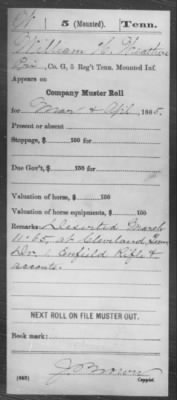 W | 5 (Mounted). | Tenn.
William H.
Pvt, Co. G, 5 Reg't Tenn. Mounted Inf.
Appears on
Company Muster Roll
for Mar & Apl, 1865.
Present or absent
Stoppage, $ 100 for
Due Gov't, $ 100 for
Valuation of horse, $ 100
Valuation of horse equipments, $ 100
Remarks: Deserted March
11-65, at Cleveland Tenn
Dr. 1 Enfield Rifle &
accouts.
NEXT ROLL ON FILE MUSTER OUT.
Book mark:
J Brown
Copyist.